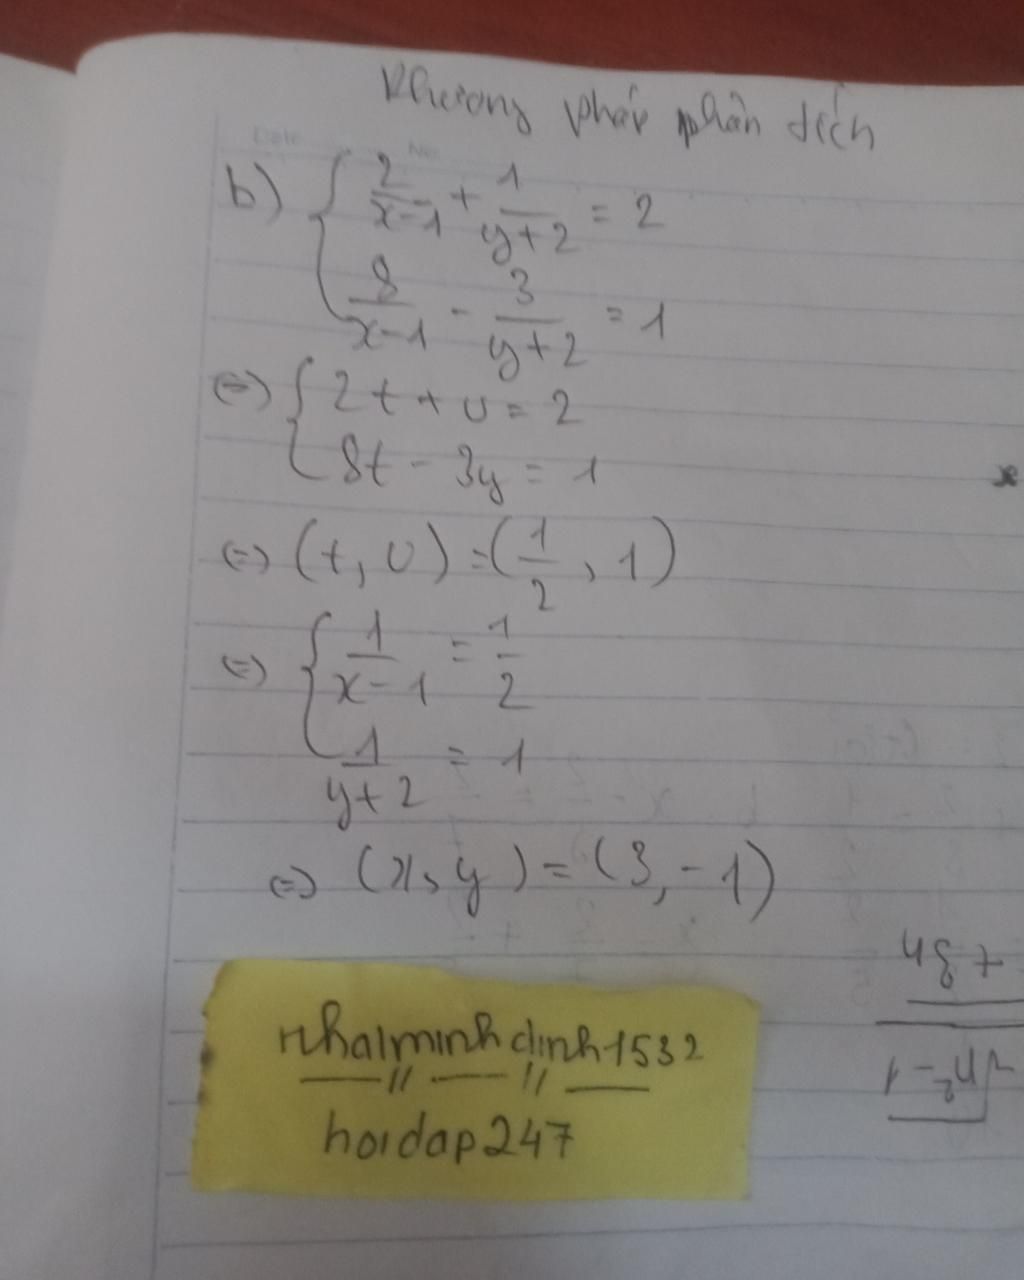 Phương pháp phân tích
Date No.
b) { 2/(x-1) + 1/(y+2) = 2
8/(x-1) - 3/(y+2) = 1
<=> { 2t + u = 2
8t - 3y = 1
<=> (t, u) = (1/2, 1)
<=> { 1/(x-1) = 1/2
1/(y+2) = 1
<=> (x, y) = (3, -1)
nhalminhdinh1532
hoidap247